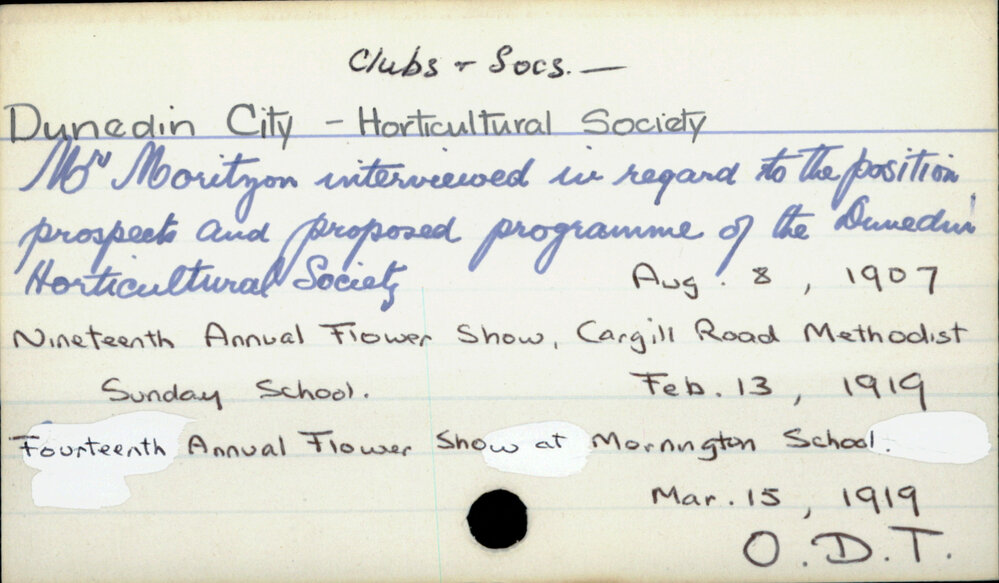 Clubs & Socs. —
Dunedin City - Horticultural Society
Mr Moritzon interviewed in regard to the position
prospects and proposed programme of the Dunedin
Horticultural Society Aug. 8, 1907
Nineteenth Annual Flower Show, Cargill Road Methodist
Sunday School. Feb. 13, 1919
Fourteenth Annual Flower Show at Mornington School.
Mar. 15, 1919
O.D.T.